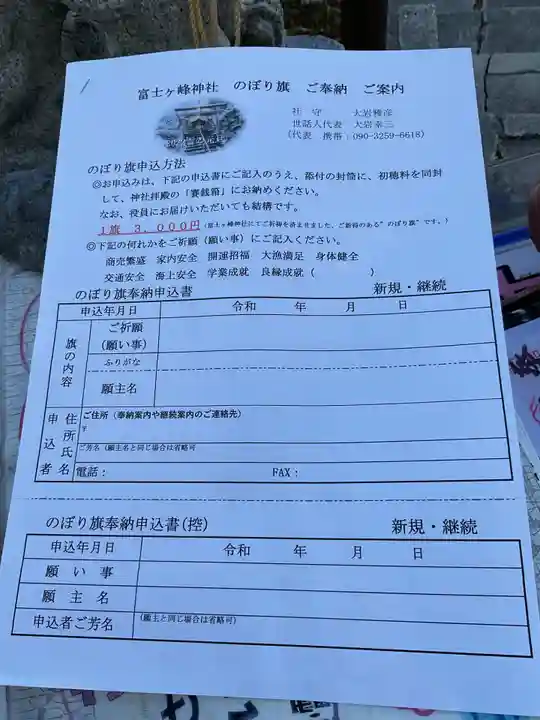 富士ヶ峰神社 のぼり旗 ご奉納 ご案内
社 守 大岩雅彦
世話人代表 大岩幸三
(代表 携帯:090-3259-6618)
のぼり旗申込方法
◎お申込みは、下記の申込書にご記入のうえ、添付の封筒に、初穂料を同封
して、神社拝殿の「賽銭箱」にお納めください。
なお、役員にお届けいただいても結構です。
1旗 3,000円(富士ヶ峰神社にてご祈祷を済ませました、ご祈祷のある"のぼり旗"です。)
◎下記の何れかをご祈願(願い事)にご記入ください。
商売繁盛 家内安全 開運招福 大漁満足 身体健全
交通安全 海上安全 学業成就 良縁成就( )
のぼり旗奉納申込書 新規・継続
申込年月日 令和 年 月 日
旗の内容
ご祈願
(願い事)
ふりがな
願主名
申込者
住所氏名
ご住所(奉納案内や継続案内のご連絡先)
〒
ご芳名(願主名と同じ場合は省略可)
電話: FAX:
のぼり旗奉納申込書(控) 新規・継続
申込年月日 令和 年 月 日
願い事
願主名
申込者ご芳名 (願主と同じ場合は省略可)